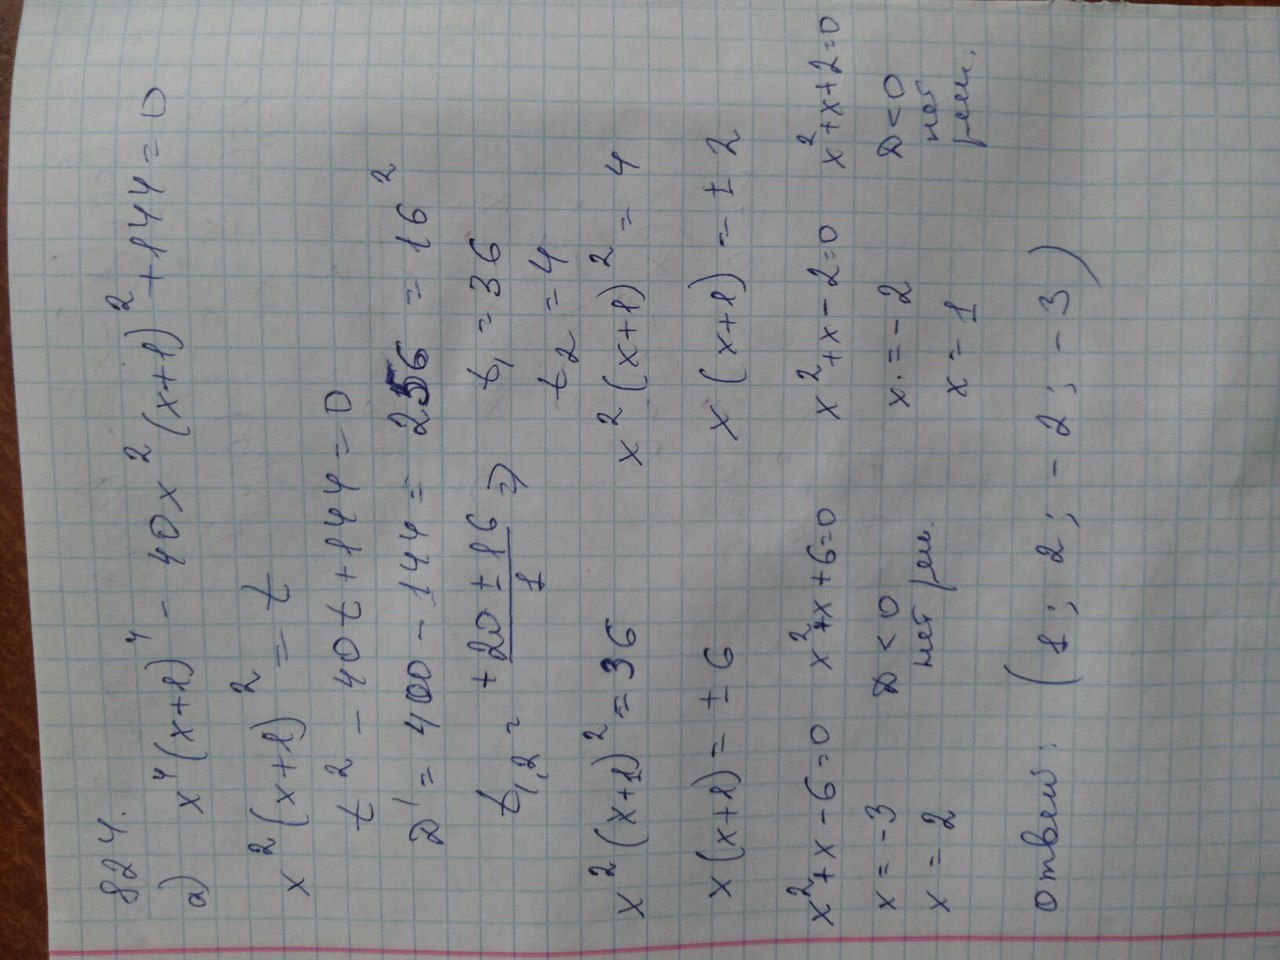 824.
а) x⁴(x+1)⁴ - 40x²(x+1)² + 144 = 0
x²(x+1)² = t
t² - 40t + 144 = 0
D' = 400 - 144 = 256 = 16²
t₁,₂ = +20 ± 16 / 1 ⇒ t₁ = 36
t₂ = 4
x²(x+1)² = 36 x²(x+1)² = 4
x(x+1) = ± 6 x(x+1) = ± 2
x²+x-6=0 x²+x+6=0 x²+x-2=0 x²+x+2=0
x = -3 D < 0 x = -2 D < 0
x = 2 нет реш. x = 1 нет
реш.
ответ: (1; 2; -2; -3)